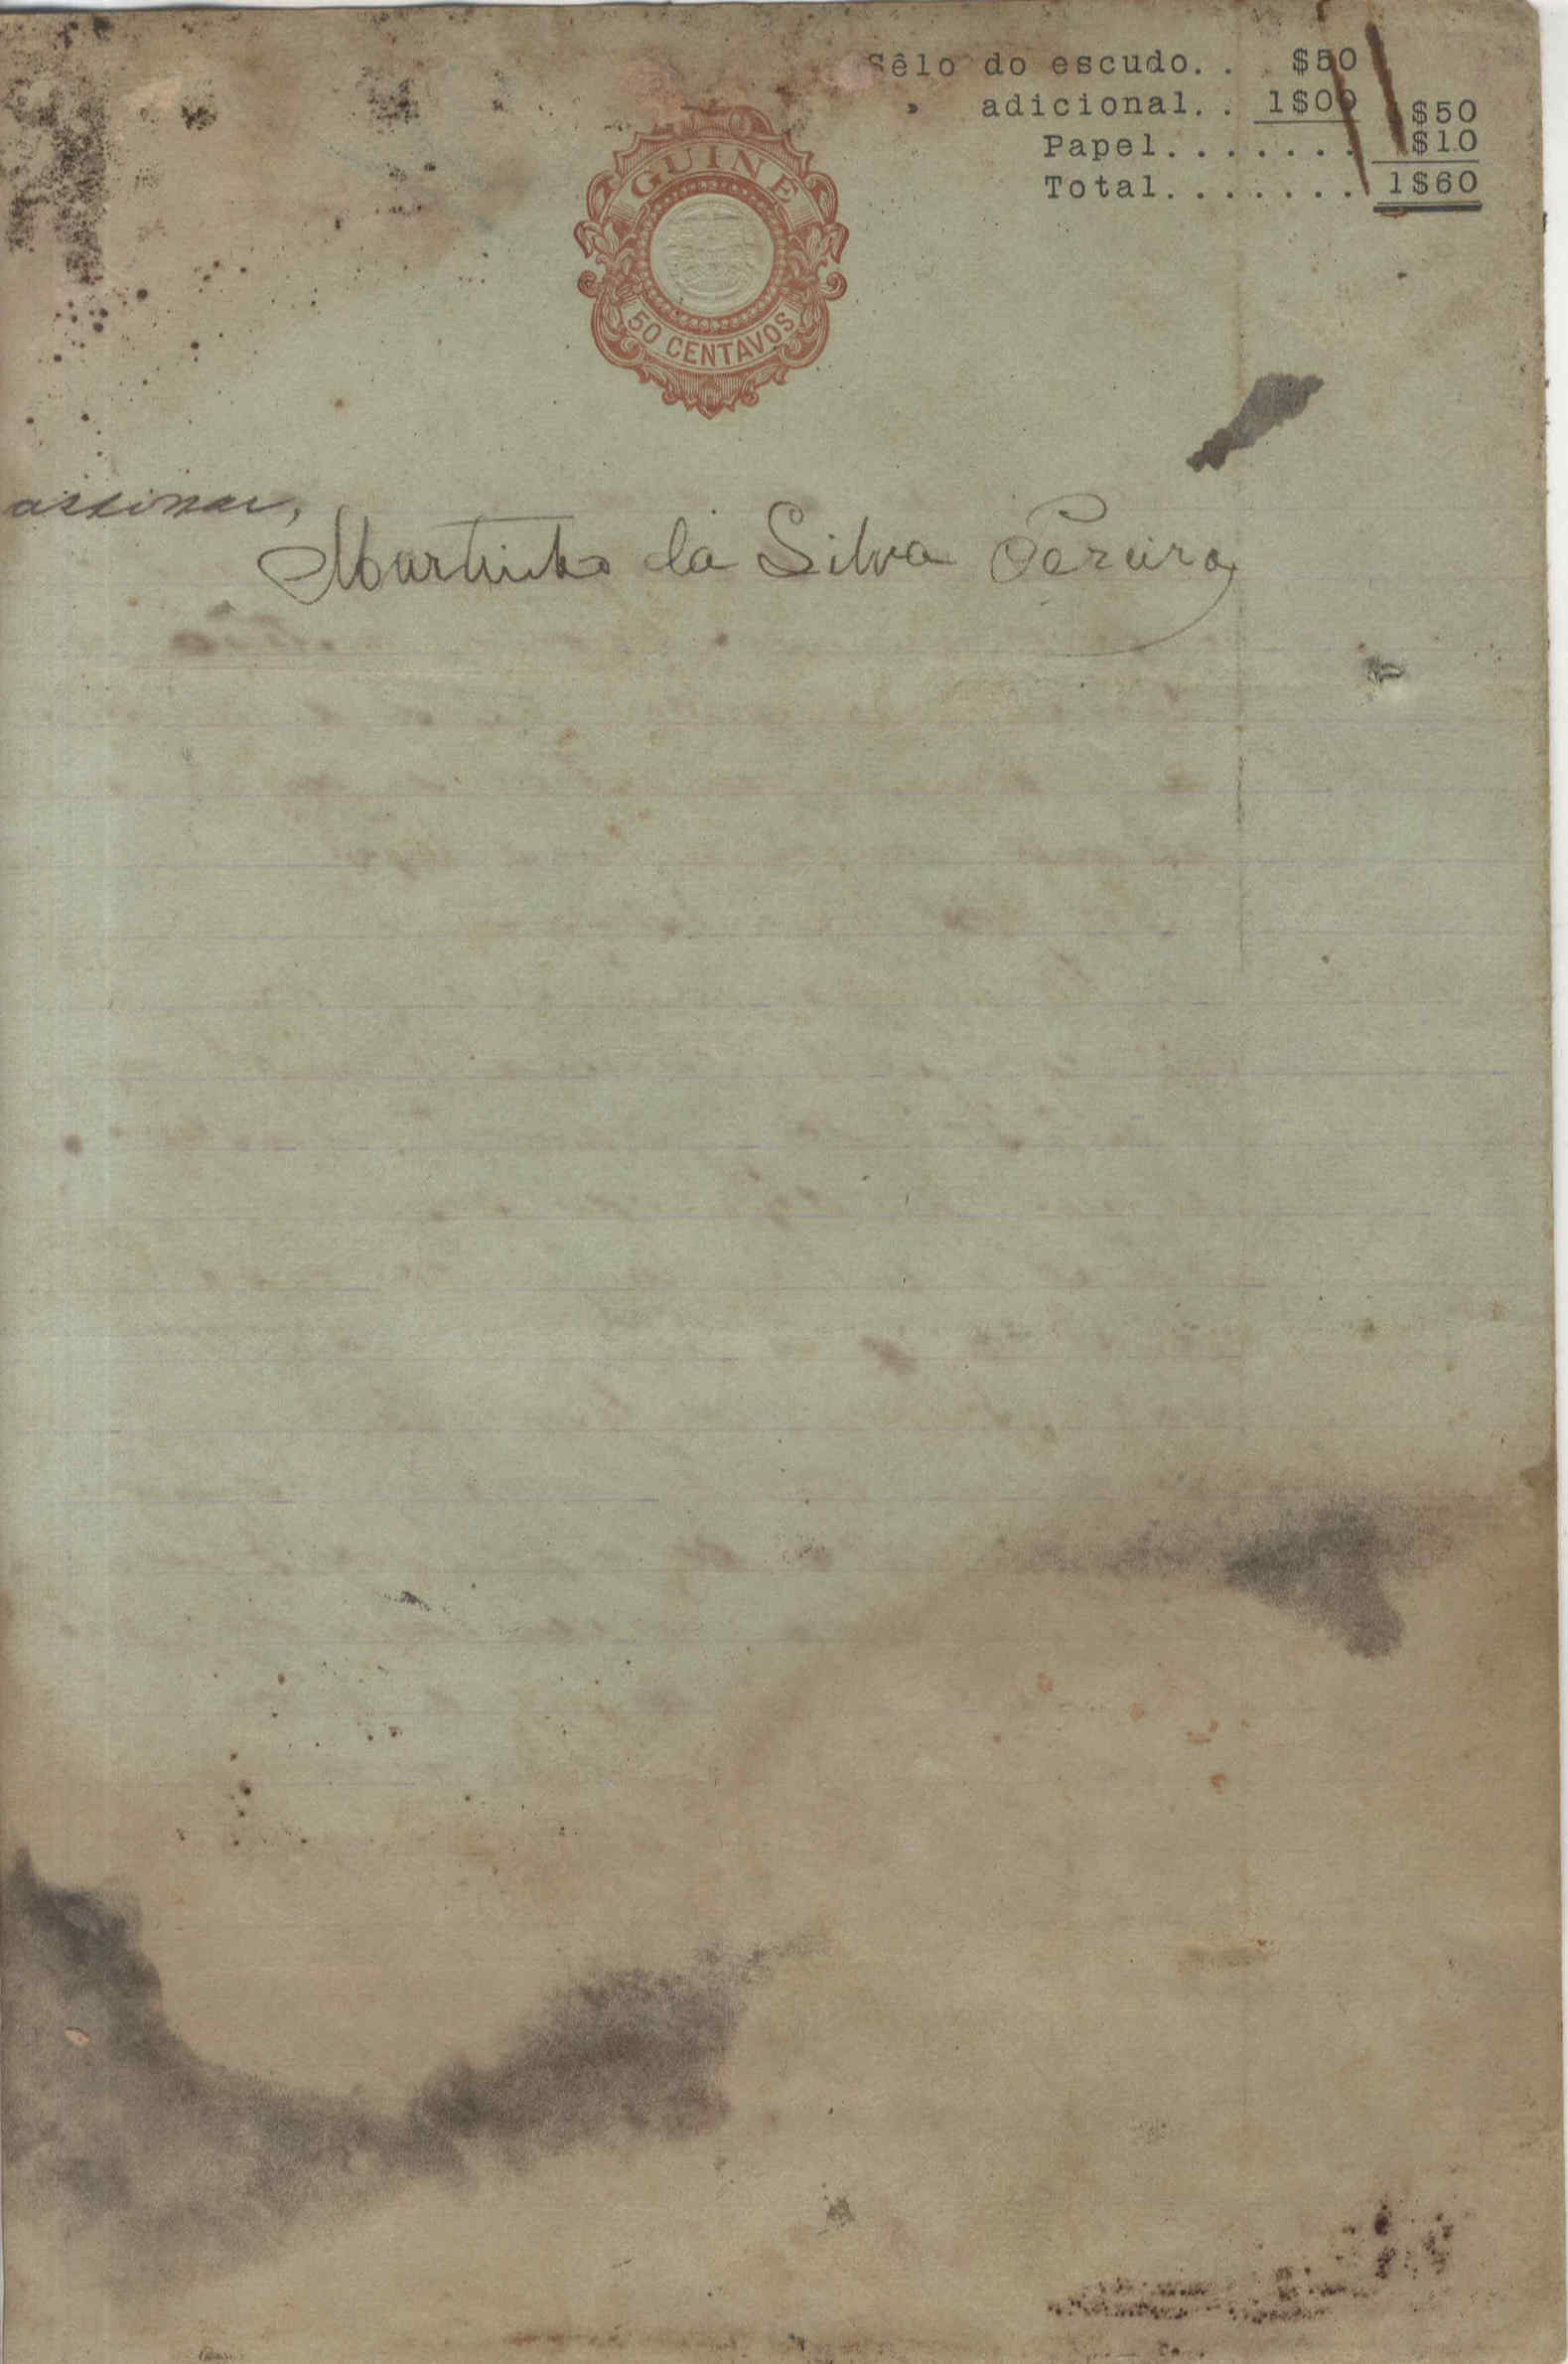 Sêlo do escudo. . $50
» adicional. . 1$00 1$50
Papel. . . . . . . $10
Total. . . . . . . 1$60
GUINÉ
50 CENTAVOS
assinar,
Martinho da Silva Pereira